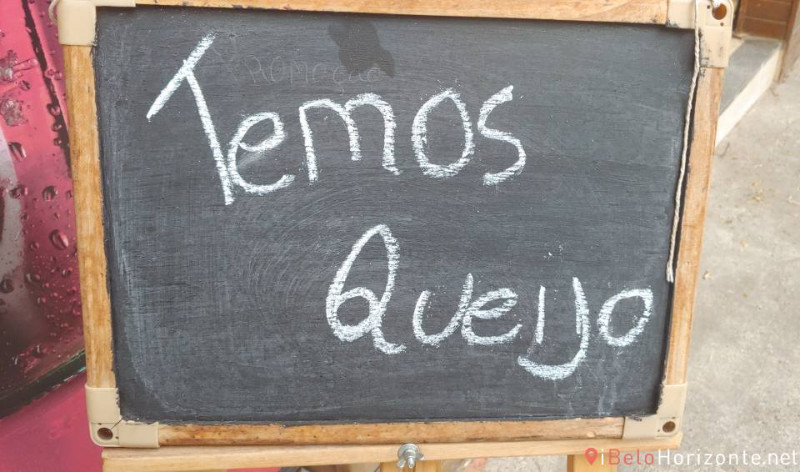 Temos
Queijo
iBeloHorizonte.net